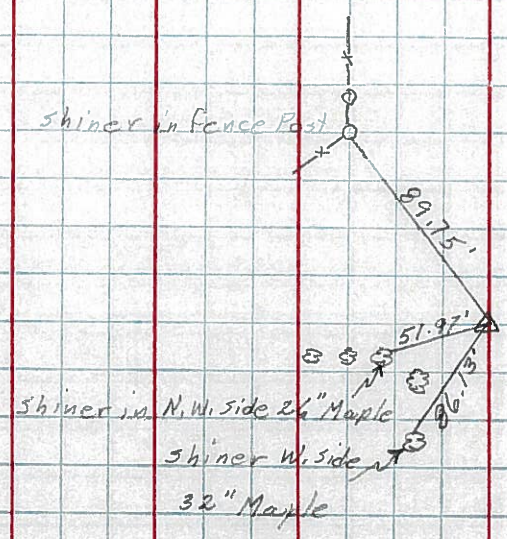 shiner in fence Post
89.75'
51.97'
86.13'
shiner in N.W. side 24" Maple
shiner W. side
32" Maple